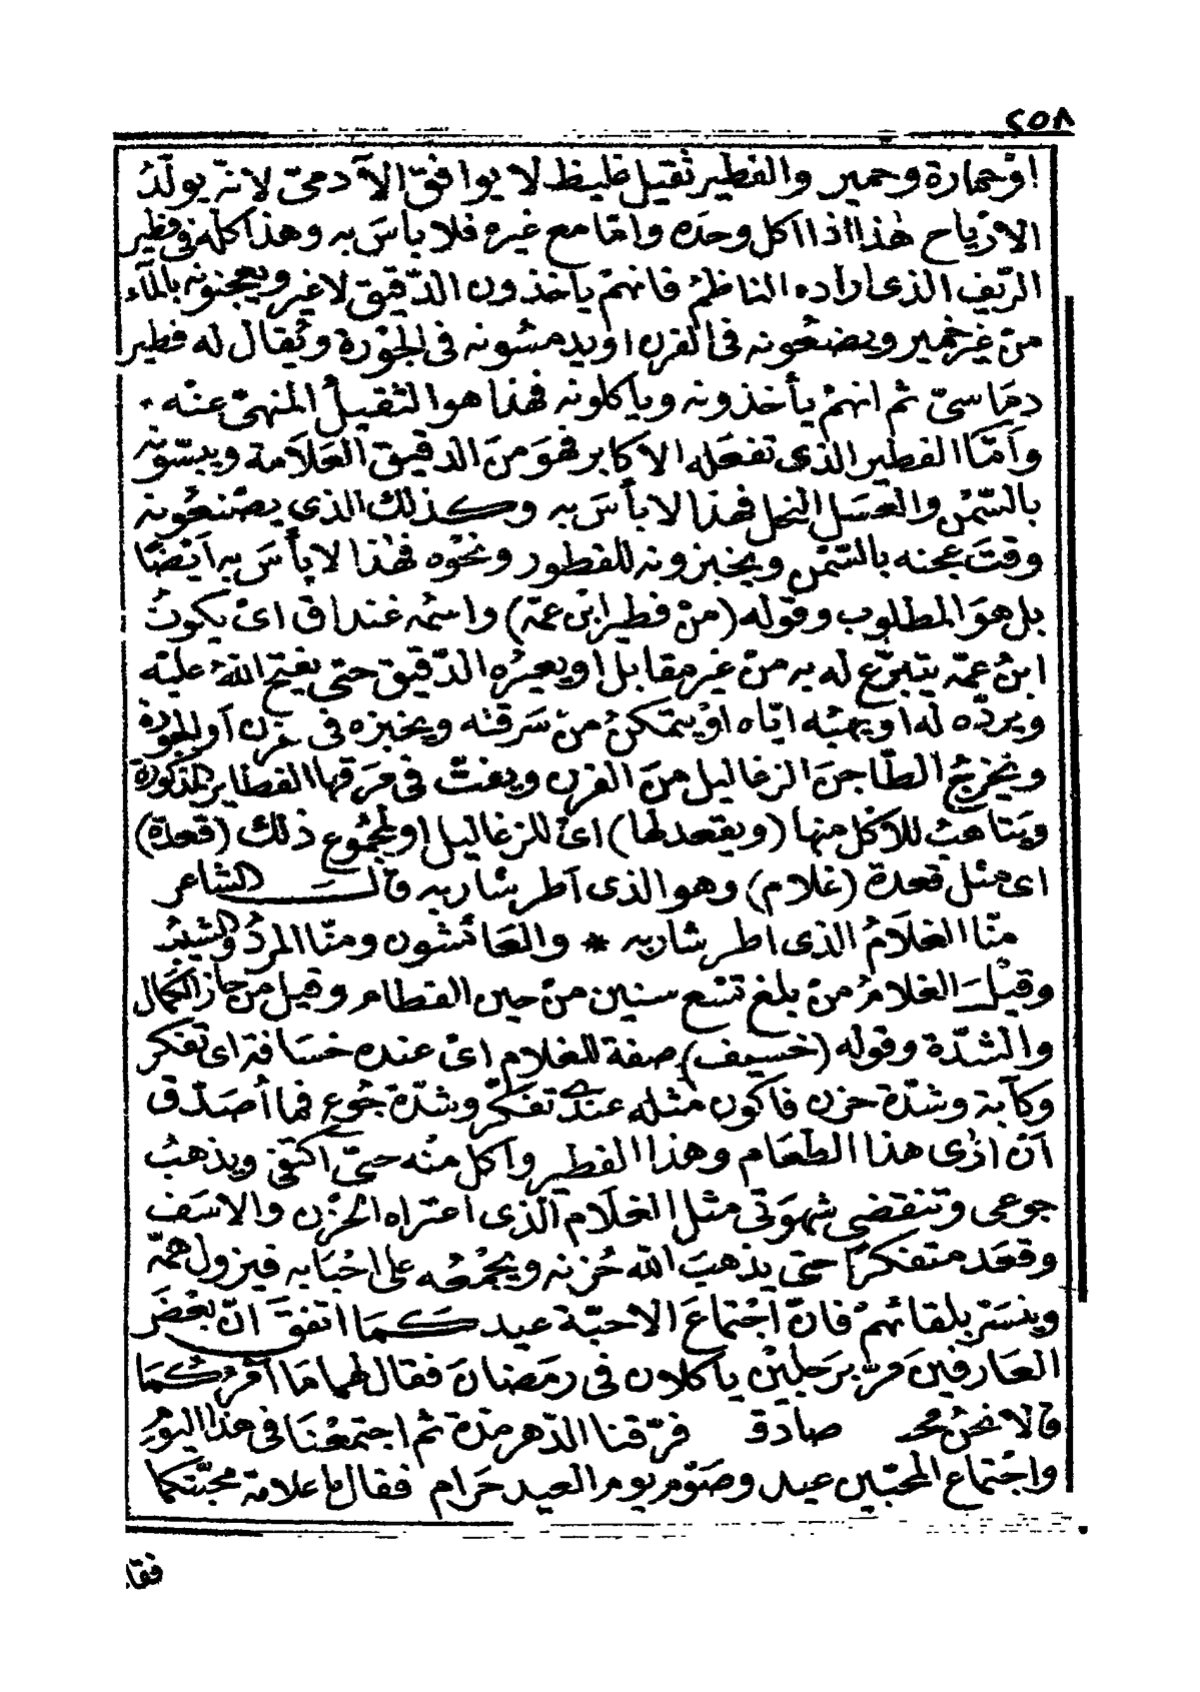 ٢٥٨
اوحمارة وحمير والفطير ثقيل غليظ لا يوافق الآدمى لانه يولّد
الارياح هذا اذا اكل وحده وامّا مع غيره فلا باسَ به وهذا كله فى فطير
الريف الذى اراده الناظم فانهم يأخذون الدّقيق لا غير ويعجنونه بالمآء
من غير خمير ويضعونه فى الفرن او يدمسونه فى الجورة ويُقال له فطير
دمّاسىّ ثم انهم يأخذونه ويأكلونه فهذا هو الثقيل المنهى عنه ٠
وأمّا الفطير الذى تفعله الاكابر فهوَ منَ الدقيق العَلاَمة ويبسّونه
بالسّمن والعسَل النحل فهذا لابأسَ به وكذلك الذى يصْنعُونه
وقتَ عجنه بالسّمْن ويخبزونه للفطور ونحْوه فهٰذا لابأسَ به اَيْضًا
بل هوَ المطلوب وقوله (منْ فطير ابْن عمّه) واسْمُه غنداق اىْ يكونُ
ابنُ عمّه يتبرّع له به منْ غير مقابل او يعيرُه الدّقيق حتى يفتح اللهُ عليْه
ويردّه له او يهبُه ايّاه اوْ يتمكنُ منْ سَرقته ويخبزه فى فرن اَو الجورة
ويُخرجُ الطّاجنَ الزغاليل منَ الفرن ويفتّ فى مَرَقها الفطاير المذكورة
ويَتاهّبُ للاكل منها (ويقعد لها) اىْ للزغاليل او لمجْمُوع ذلك (قعدة)
اى مثل قعدة (غلام) وهو الذى اَطر شاربه قالـــت الشاعر
منّا الغلاَمُ الذى اطر شاربه * والعَائشون ومنّا المردُ والشيبُ
وقيْلَ الغلامُ منْ بلغ تسْع سنين منْ حين الفطام وقيل منْ حاز الكمال
والشدّة وقوله (خسيف) صفة للغلام اىْ عنده خسَافة اى تفكر
وكآبة وشدّة حزن فاكون مثله عندى تفكّر وشدّة جُوع فما أصَدّق
اَن اَرٰى هذا الطعَام وهذا الفطير وآكل منْه حتىّ اكتفى ويذهبُ
جوعى وتنقضى شهوَتى مثل الغلَام الّذى اعتراه الحزْن والاسَف
وقعَد متفكّرًا حتى يذهبَ اللهُ حُزنه ويجْمعُه على احْبَابه فيزول همّه
وينسَرّ بلقائهمْ فانّ اجْتماعَ الاحبّة عيد كـمَا اتفقَ انّ بعْضَ
العَارفينَ مرّ برَجليْن يأكلان فى رمَضانَ فقال لهما مَا اَمْرُكُمَا
قالا نحْنُ محـ صادق فرّقنا الدّهر مدّة ثم اجتمعْنَا فى هذا اليوْم
واجْتماع المحبّين عيد وصَوْم يوم العيد حَرام فقال ما علامة محبّتكما
فقا